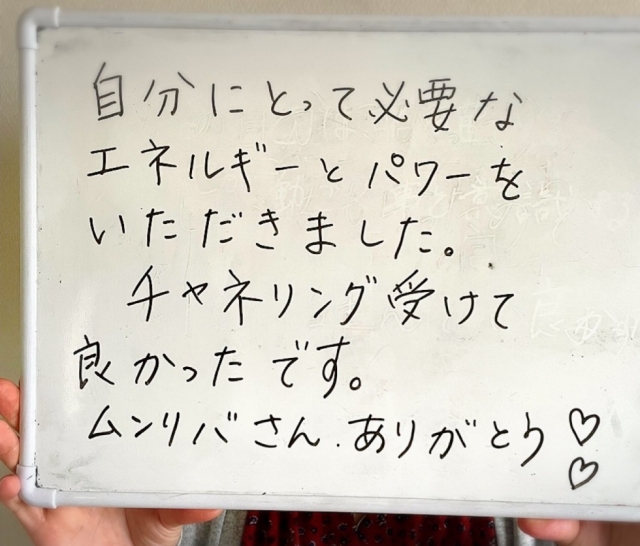 自分にとって必要な
エネルギーとパワーを
いただきました。
チャネリング受けて
良かったです。
ムンリバさん.ありがとう♡
♡